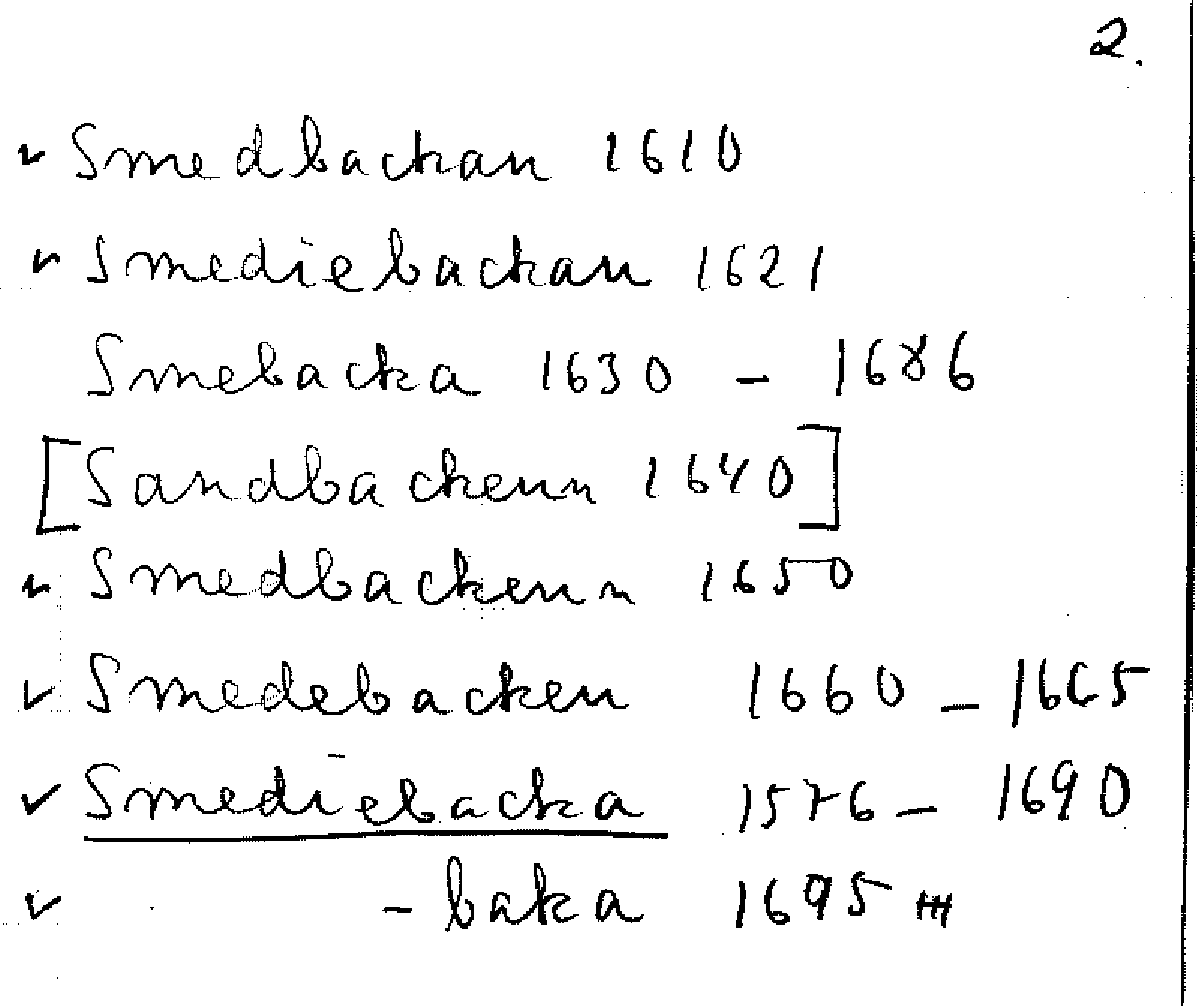 2.
✓ Smedbackan 1610
✓ Smediebackan 1621
Smebacka 1630 - 1686
[Sandbackenn 1640]
✓ Smedbackenn 1650
✓ Smedebacken 1660 - 1665
✓ Smediebacka 1576 - 1690
✓ - baka 1695